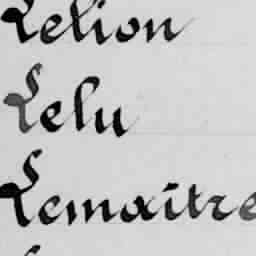 Lelion
Lelu
Lemaitre